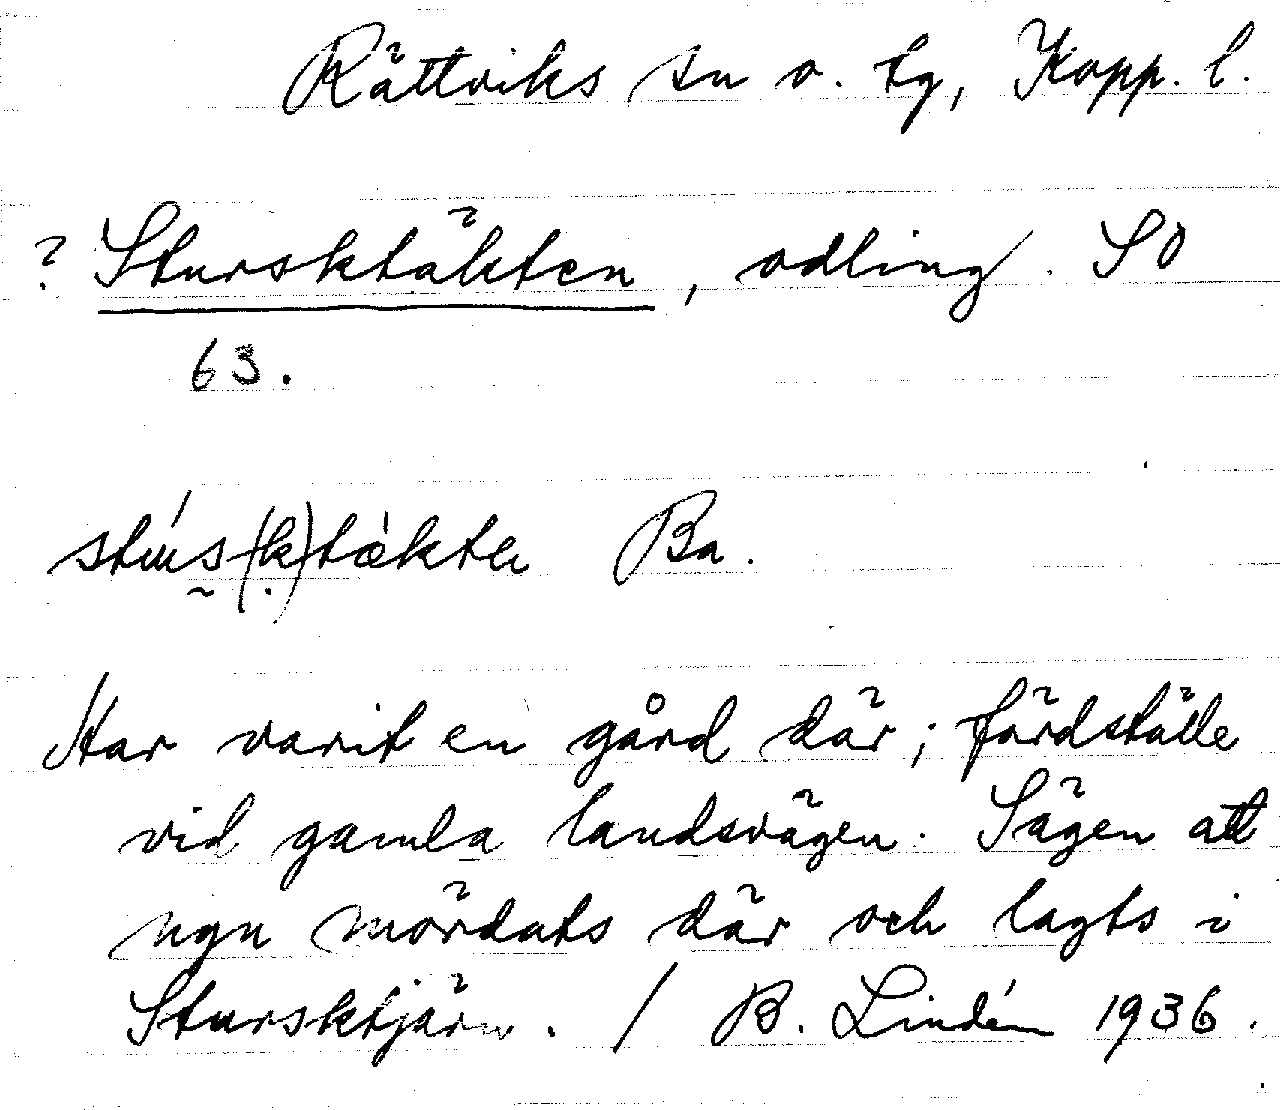 Rättviks sn o. tg, Kopp. l.
? Stursktäkten, odling. SO
63.
Ba.
Har varit en gård där; färdställe
vid gamla landsvägen. Sägen att
ngn mördats där och lagts i
Sturktjärn. / B. Lindén 1936.